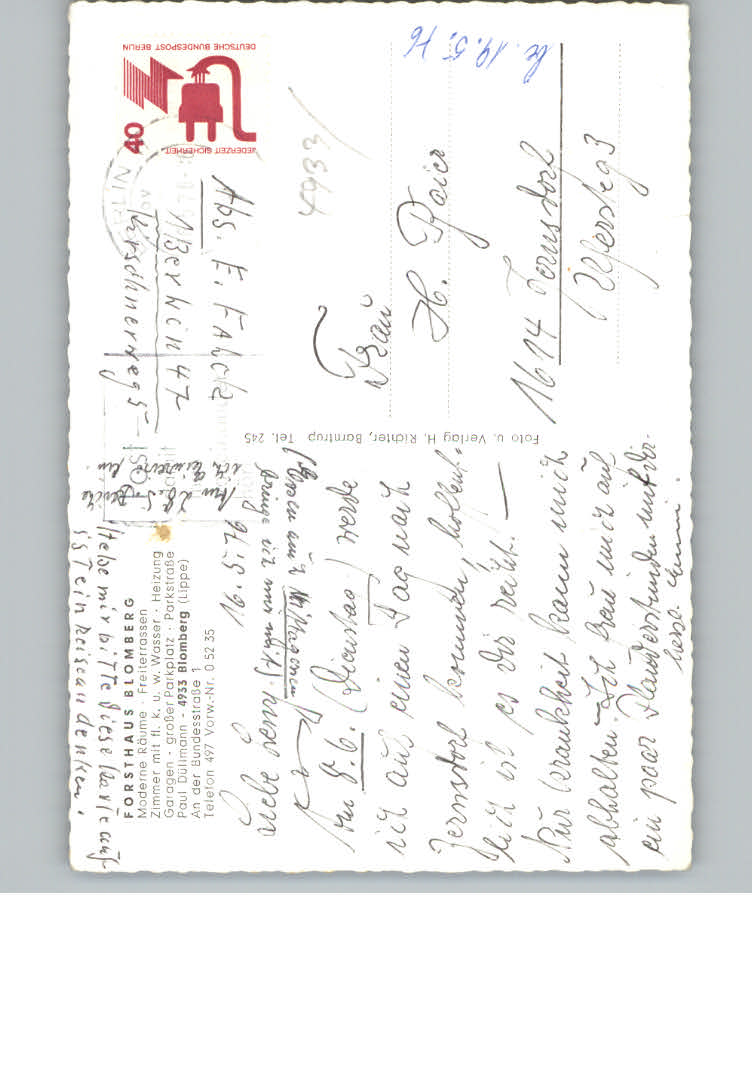 Hebe mir bitte diese Karte auf
ist ein Reiseandenken!
FORSTHAUS BLOMBERG
Moderne Räume · Freiterrassen
Zimmer mit fl. k. u. w. Wasser · Heizung
Garagen - großer Parkplatz · Parkstraße
Paul Düllmann - 4933 Blomberg (Lippe)
An der Bundesstraße 1
Telefon 497 Vorw.-Nr. 0 52 35
11.5.76
Liebe
bringe ich mir mit.)
Am 8.6. (Dienstag) werde
ich auf einen Tag nach
Zernsdorf kommen, hoffent-
lich ist es Dir recht. —
Nur Krankheit kann mich
abhalten. Ich freu mich auf
ein paar Plauderstunden mit Dir.
herzl.
Foto u. Verlag H. Richter, Barntrup Tel. 245
DEUTSCHE BUNDESPOST BERLIN
40
JEDERZEIT SICHERHEIT
BERLIN
4933
Abs. E.
1 Berlin 47
Kirschnerweg 5
be. 19.5.76
Frau
H.
1614 Zernsdorf
Uferste 3